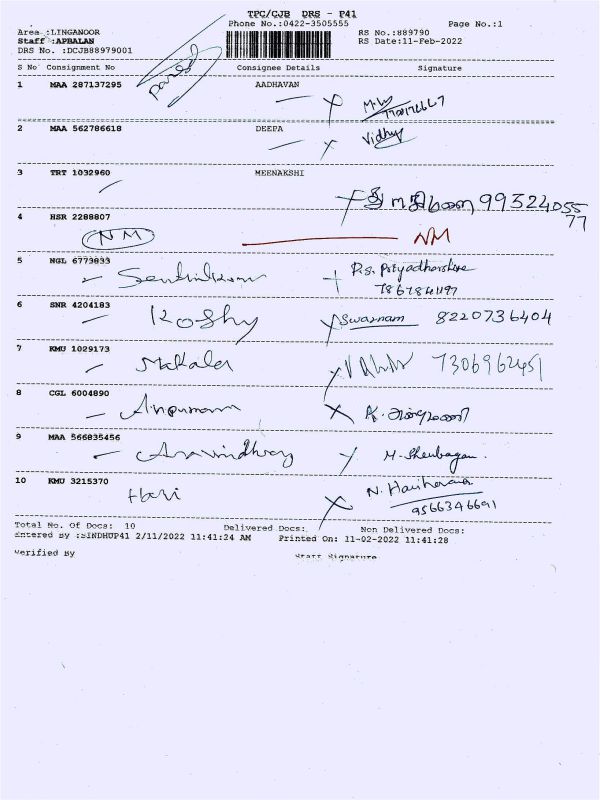 TPC/CJB DRS - P41
Phone No.:0422-3505555
Page No.:1
Area :LINGANOOR
RS No.:889790
Staff :APBALAN
RS Date:11-Feb-2022
DRS No. :DCJB88979001
S No Consignment No Consignee Details Signature
1 MAA 287137295 AADHAVAN
2 MAA 562786618 DEEPA
Vidhy
3 TRT 1032960 MEENAKSHI
9932405577
4 HSR 2288807
NM NM
5 NGL 6773833
P.S. Priyadharshine
6 SNR 4204183
Koshy Swarnam 8220736404
7 KMU 1029173
Mekala 7306962451
8 CGL 6004890
9 MAA 566835456
Aravindhray M. Shenbagam.
10 KMU 3215370
Hari N. Hariharan
9566346691
Total No. Of Docs: 10 Delivered Docs: Non Delivered Docs:
Entered By :SINDHUP41 2/11/2022 11:41:24 AM Printed On: 11-02-2022 11:41:28
Verified By Staff Signature